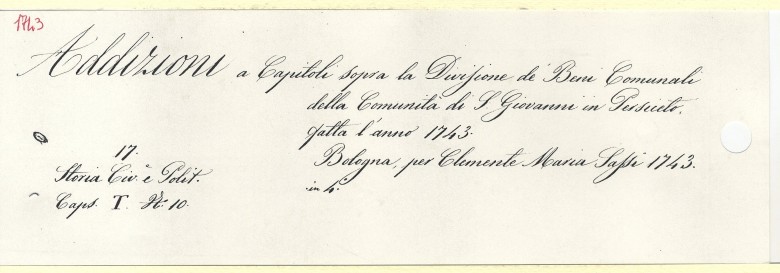 1743
Addizioni a Capitoli sopra la Divisione de' Beni Comunali
della Comunità di S. Giovanni in Persiceto,
fatta l'anno 1743.
Bologna, per Clemente Maria Sassi 1743.
in 4.°
17.
Storia Civ.e e Polit.
Caps. T. N.° 10.